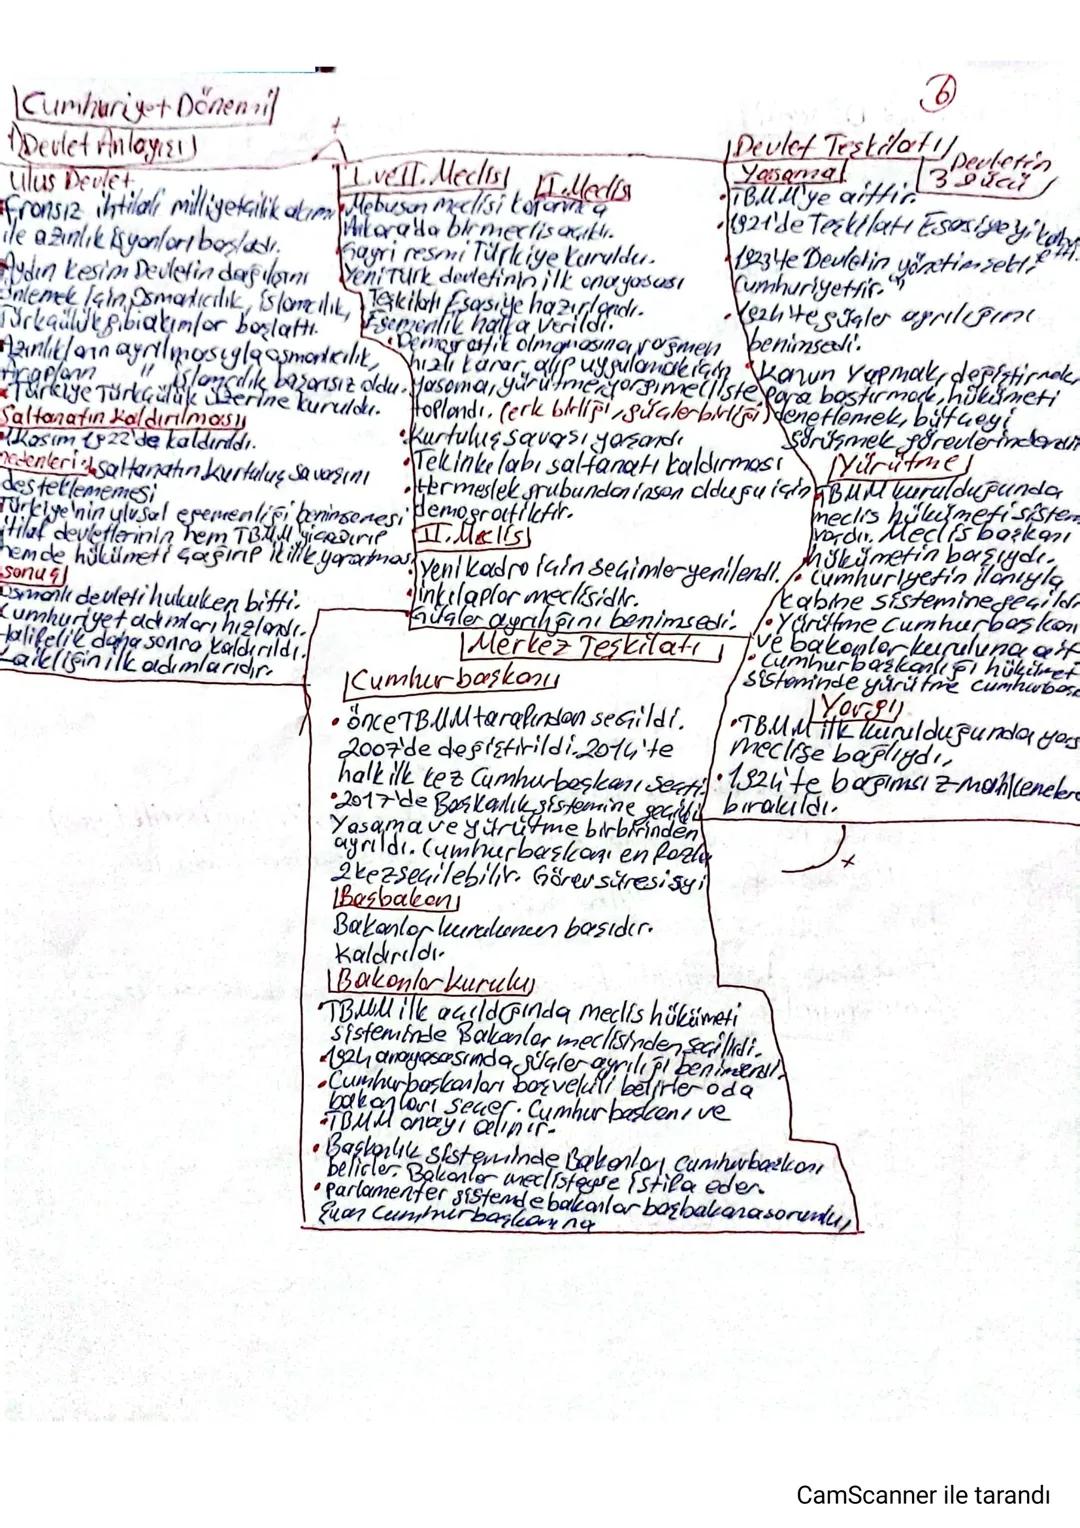 6
Cumhuriyet Dönemi
1) Devlet Anlayışı
Ulus Devlet
Fransız ihtilali milliyetçilik akımı
ile azınlık isyonları başladı.
Aydın kesim Devletin dağılışını
önlemek için, Osmanlıcılık, islamcılık,
Türkçülük gibi akımlar başlattı.
Azınlıkların ayrılmasıyla osmanlıcılık,
Arapların " islamcılık başarısız oldu.
Türkiye Türkçülük üzerine kuruldu.
Saltanatın Kaldırılması
1 Kasım 1922'de kaldırıldı.
nedenleri saltanatın kurtuluş savaşını
desteklememesi
Türkiye'nin ulusal egemenliği benimsemesi
itilaf devletlerinin hem TBMM yi çağırıp
hemde hükümeti çağırıp ikilik yaratması
sonuç
Osmanlı devleti hukuken bitti.
Cumhuriyet adımları hızlandı.
Halifelik daha sonra kaldırıldı.
Laikliğin ilk adımlarıdır.
I. ve II. Meclis
I. Meclis
Mebusan meclisi
Ankara'da bir meclis açıldı.
Gayri resmi Türkiye kuruldu.
Yeni Türk devletinin ilk anayasası
Teşkilatı Esasiye hazırlandı.
Egemenlik halka verildi.
Demogratik olmamasına rağmen
hızlı karar alıp uygulamak için
Yasama, yürütme, yargı mecliste
toplandı. (erk birliği, güçler birliği)
Kurtuluş savaşı yaşandı
Tek inkılabı saltanatı kaldırması
Her meslek grubundan insan olduğu için
demogratiktir.
II. Meclis
Yeni kadro için seçimler yenilendi.
inkılaplar meclisidir.
Güçler ayrılığını benimsedi.
Devlet Teşkilatı
Devletin
3 gücü
Yasama
TBMM'ye aittir.
1921'de Teşkilatı Esasiye yi kabul
etti.
1923'te Devletin yönetim şekli
Cumhuriyettir.
1924'te güçler ayrılığını
benimsedi.
Kanun Yapmak, değiştirmek,
Para bastırmak, hükümeti
denetlemek, bütçeyi
görüşmek görevlerindendir
Yürütme
TBMM kurulduğunda
meclis hükümeti sistem
vardır. Meclis başkanı
hükümetin başıydı.
Cumhuriyetin ilanıyla
kabine sistemine geçildi
Yürütme Cumhurbaşkanı
ve bakanlar kuruluna ait
Cumhurbaşkanlığı hükümet
sisteminde yürütme cumhurbaşk
Yargı
TBMM ilk kurulduğunda yargı
meclise bağlıydı.
1924'te bağımsız mahkemelere
bırakıldı.
Merkez Teşkilatı
Cumhurbaşkanı
önce TBMM tarafından seçildi.
2007'de değiştirildi. 2014'te
halk ilk kez Cumhurbaşkanı seçti.
2017'de Başkanlık sistemine geçildi
Yasama ve yürütme birbirinden
ayrıldı. Cumhurbaşkanı en fazla
2 kez seçilebilir. Görev süresi 5 yıl
Başbakan
Bakanlar kurulunun başıdır.
Kaldırıldı.
Bakanlar kurulu
TBMM ilk açıldığında meclis hükümeti
sisteminde Bakanlar meclisinden seçilirdi.
1924 anayasasında güçler ayrılığı benimsendi.
Cumhurbaşkanları başvekili belirler o da
bakanları seçer. Cumhurbaşkanı ve
TBMM onayı alınır.
Başkanlık sisteminde Bakanları cumhurbaşkanı
belirler. Bakanlar meclisteyse istifa eder.
parlamenter sistemde bakanlar başbakana sorumlu,
Şuan Cumhurbaşkanına
CamScanner ile tarandı